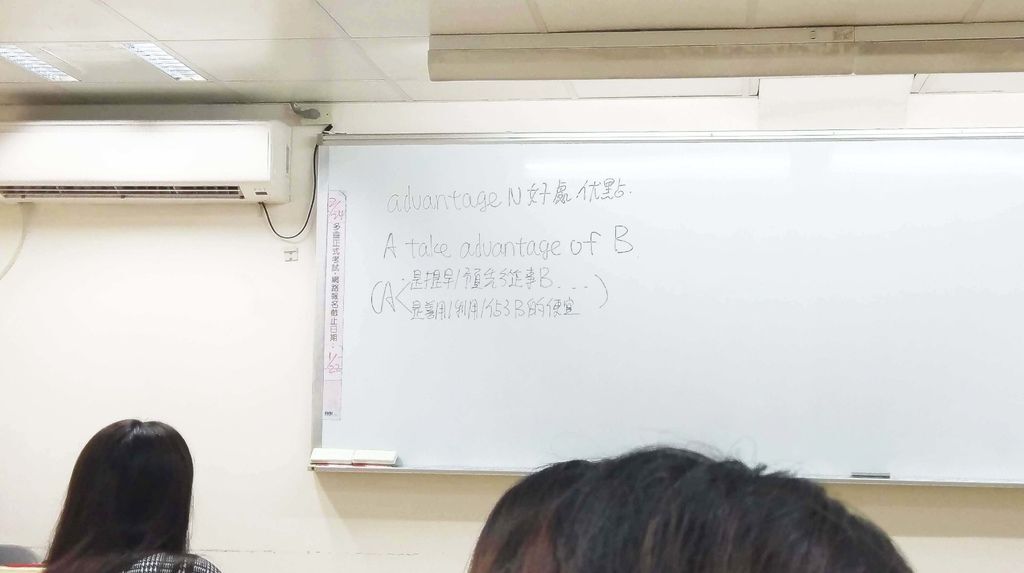 advantage N 好處 优點.
A take advantage of B.
(A
是提早/預先從事B....)
是善用/利用/佔3B的便宜
2/24 多益正式考試,網路報名截止日期: 1/22